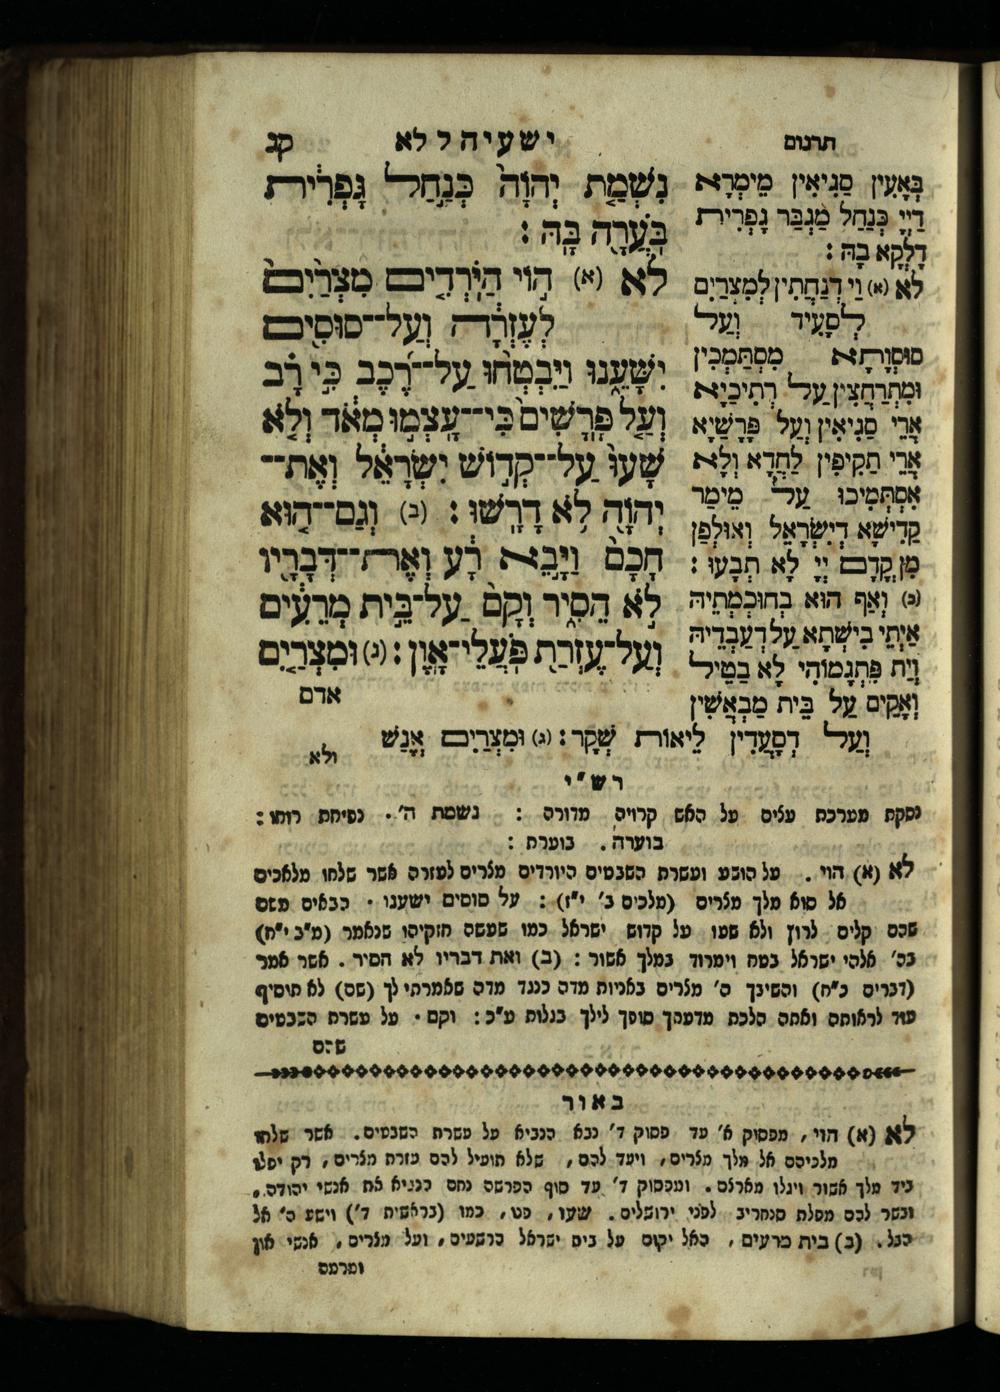 תרגום
ישעיה ל לא
קג
בְּאָעִין סַגִיאִין מֵימְרָא
דַיְיָ כְּנַחַל מַגְבַּר גָפְרִית
דָלְקָא בָהּ :
לא (א) וַי דְנַחֲתִין לְמִצְרַיִם
לְסָעִיד וְעַל
סוּסְוָתָא מִסְתַּמְכִין
וּמִתְרַחֲצִין עַל רְתִיכַיָא
אֲרֵי סַגִיאִין וְעַל פָּרָשַׁיָא
אֲרֵי תַקִיפִין לַחֲדָא וְלָא
אִסְתְּמִיכוּ עַל מֵימַר
קַדִישָׁא דְיִשְׂרָאֵל וְאוּלְפַן
מִן קֳדָם יְיָ לָא תְבָעוּ :
(ב) וְאַף הוּא בְּחוּכְמְתֵיהּ
אַיְתֵי בִישְׁתָא עַל דְעַבְדֵיהּ
וְיַת פִּתְגָמוֹהִי לָא בַטֵיל
וְאָקִים עַל בֵּית מַבְאֲשִׁין
וְעַל דְסָעֲדִין לֵיאוּת שְׁקָר : (ג) וּמִצְרַיִם אֱנָשׁ
ולא
נִשְׁמַת יְהוָה כְּנַחַל גָּפְרִית
בֹּעֲרָה בָּהּ :
לא (א) הוֹי הַיֹּרְדִים מִצְרַיִם
לְעֶזְרָה וְעַל־סוּסִים
יִשָּׁעֵנוּ וַיִּבְטְחוּ עַל־רֶכֶב כִּי רָב
וְעַל פָּרָשִׁים כִּי־עָצְמוּ מְאֹד וְלֹא
שָׁעוּ עַל־קְדוֹשׁ יִשְׂרָאֵל וְאֶת־
יְהוָה לֹא דָרָשׁוּ : (ב) וְגַם־הוּא
חָכָם וַיָּבֵא רָע וְאֶת־דְּבָרָיו
לֹא הֵסִיר וְקָם עַל־בֵּית מְרֵעִים
וְעַל־עֶזְרַת פֹּעֲלֵי־אָוֶן : (ג) וּמִצְרַיִם
אדם
רש״י
נסקת מערכת עלים על האש קרויה מדורה : נשמת ה׳. נפיחת רוחו :
בוערה. בוערת :
לא (א) הוי. על הושע ועשרת השבטים היורדים מצרים לעזרה אשר שלחו מלאכים
אל סוא מלך מצרים (מלכים ב׳ י״ז) : על סוסים ישענו. הבאים משם
שהם קלים לרוץ ולא שעו על קדוש ישראל כמו שעשה חזקיהו שנאמר (מ״ב י״ח)
בה׳ אלהי ישראל בטח וימרוד במלך אשור : (ב) ואת דבריו לא הסיר. אשר אמר
(דברים כ״ח) והשיבך ה׳ מצרים באניות מדה כנגד מדה שאמרתי לך (שם) לא תוסיף
עוד לראותה ואתה הלכת מדעתך סופך לילך בגלות ע״כ : וקם. על עשרת השבטים
שהם
באור
לא (א) הוי, מפסוק א׳ עד פסוק ד׳ נבא הנביא על עשרת השבטים. אשר שלחו
מלכיהם אל מלך מצרים, ויעד להם, שלא תועיל להם עזרת מצרים, רק יפלו
ביד מלך אשור ויגלו מארצם. ומפסוק ד׳ עד סוף הפרשה נחם הנביא את אנשי יהודה.
ובשר להם מפלת סנחריב לפני ירושלים. שעו, פט, כמו (בראשית ד׳) וישע ה׳ אל
הבל. (ב) בית מרעים, האל יקום על בית ישראל הרשעים, ועל מצרים, אנשי און
ומרמה